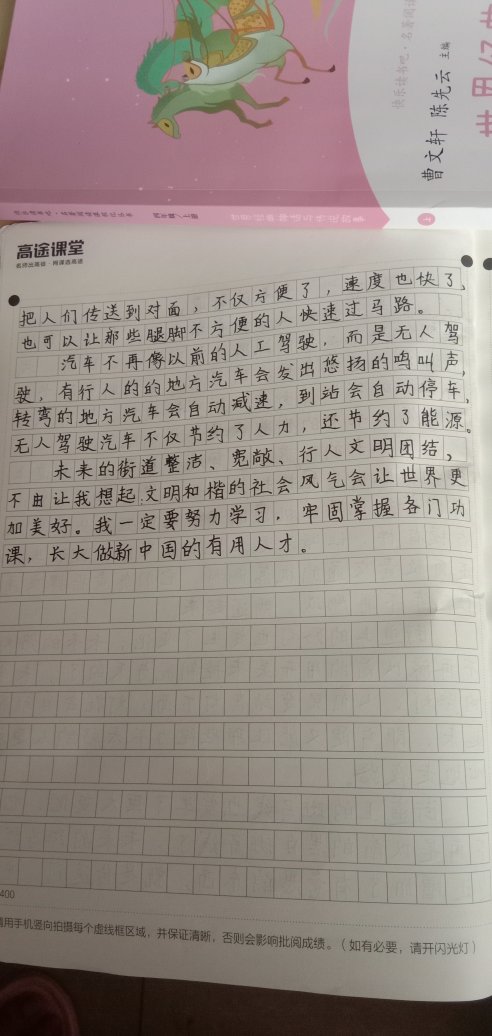 快乐读书吧·名著阅读
曹文轩 陈先云 主编
世界经典神话与传说故事
上
高途课堂
名师出高徒·网课选高途
把人们传送到对面，不仅方便了，速度也快了，
也可以让那些腿脚不方便的人快速过马路。
汽车不再像以前的人工驾驶，而是无人驾
驶，有行人的的地方汽车会发出悠扬的鸣叫声，
转弯的地方汽车会自动减速，到站会自动停车，
无人驾驶汽车不仅节约了人力，还节约了能源。
未来的街道整洁、宽敞、行人文明团结，
不由让我想起文明和楷的社会风气会让世界更
加美好。我一定要努力学习，牢固掌握各门功
课，长大做新中国的有用人才。
400
请用手机竖向拍摄每个虚线框区域，并保证清晰，否则会影响批阅成绩。（如有必要，请开闪光灯）